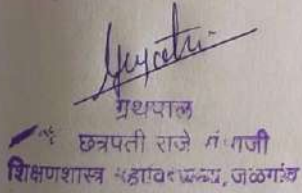 ग्रंथपाल
छत्रपती राजे संभाजी
शिक्षणशास्त्र महाविद्यालय, जळगांव